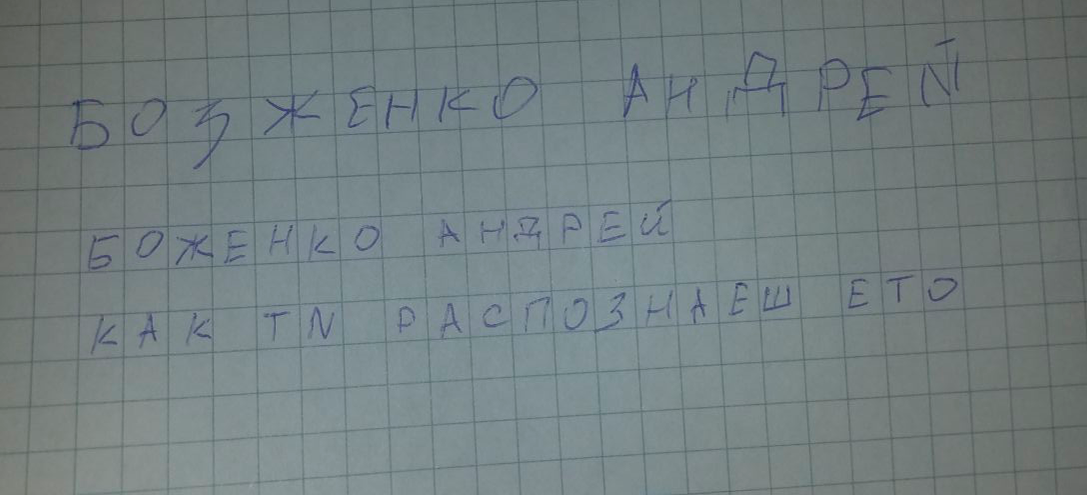 БОЗЖЕНКО АНДРЕЙ
БОЖЕНКО АНДРЕЙ
КАК ТИ РАСПОЗНАЕШ ЕТО